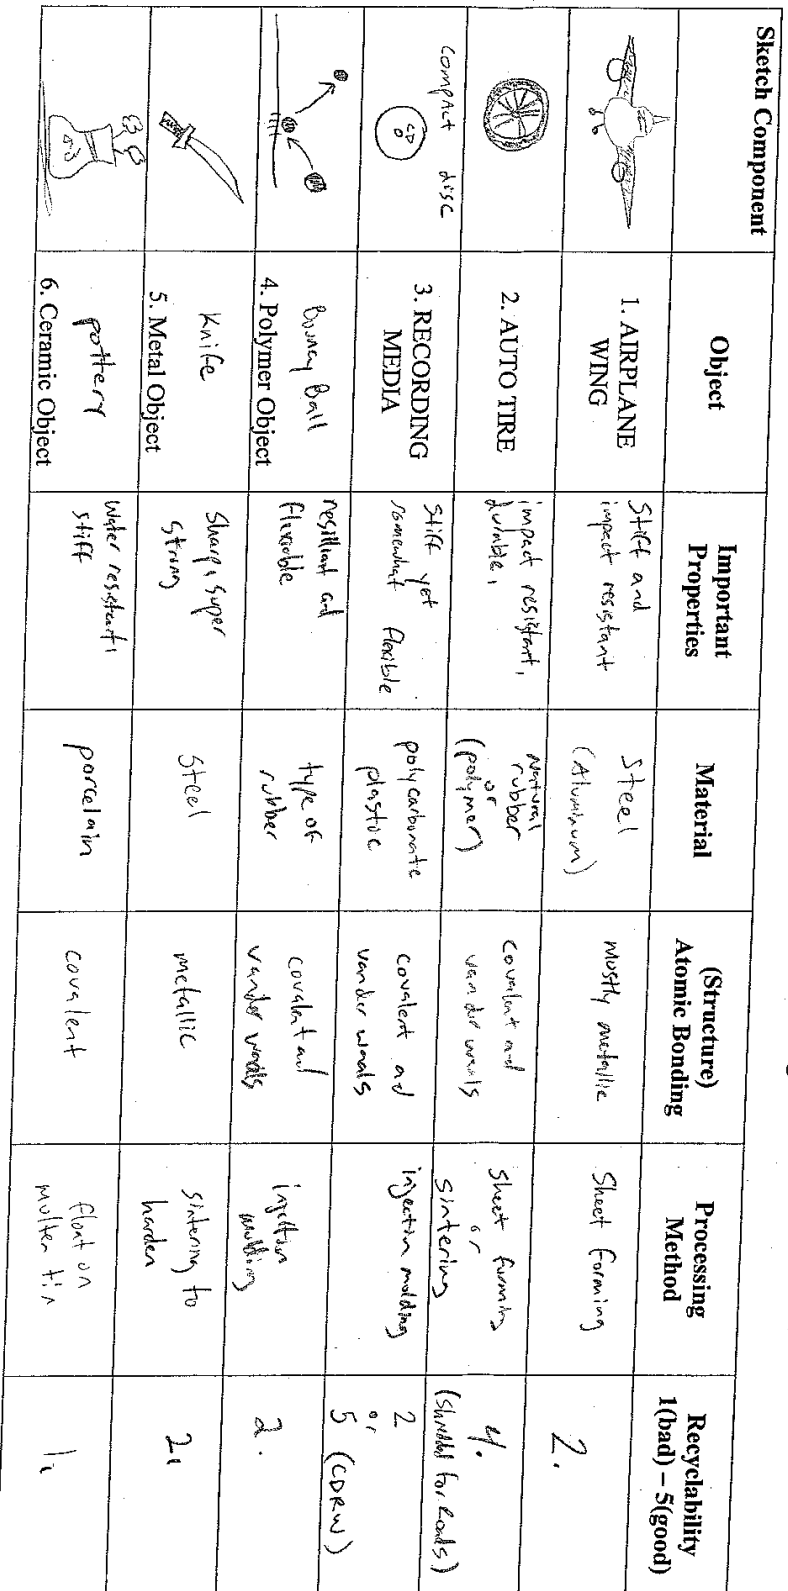 Sketch Component
Object
Important
Properties
Material
(Structure)
Atomic Bonding
Processing
Method
Recyclability
1(bad) – 5(good)
1. AIRPLANE
WING
Stiff and
impact resistant
Steel
(Aluminum)
mostly metallic
Sheet forming
2.
2. AUTO TIRE
impact resistant,
durable,
natural
rubber
or
(polymer)
covalent and
van der waals
sheet forming
or
sintering
4.
(shredded for roads)
compact disc
CD
3. RECORDING
MEDIA
stiff yet
somewhat flexible
polycarbonate
plastic
covalent ad
vander waals
injection molding
2
or
5 (CDRW)
Bouncy Ball
4. Polymer Object
resilliant ad
flexible
type of
rubber
covalent ad
vander waals
injection
molding
2.
Knife
5. Metal Object
Sharp, super
strong
Steel
metallic
sintering to
harden
2.
pottery
6. Ceramic Object
Water resistant,
stiff
porcelain
covalent
float on
molten tin
1.